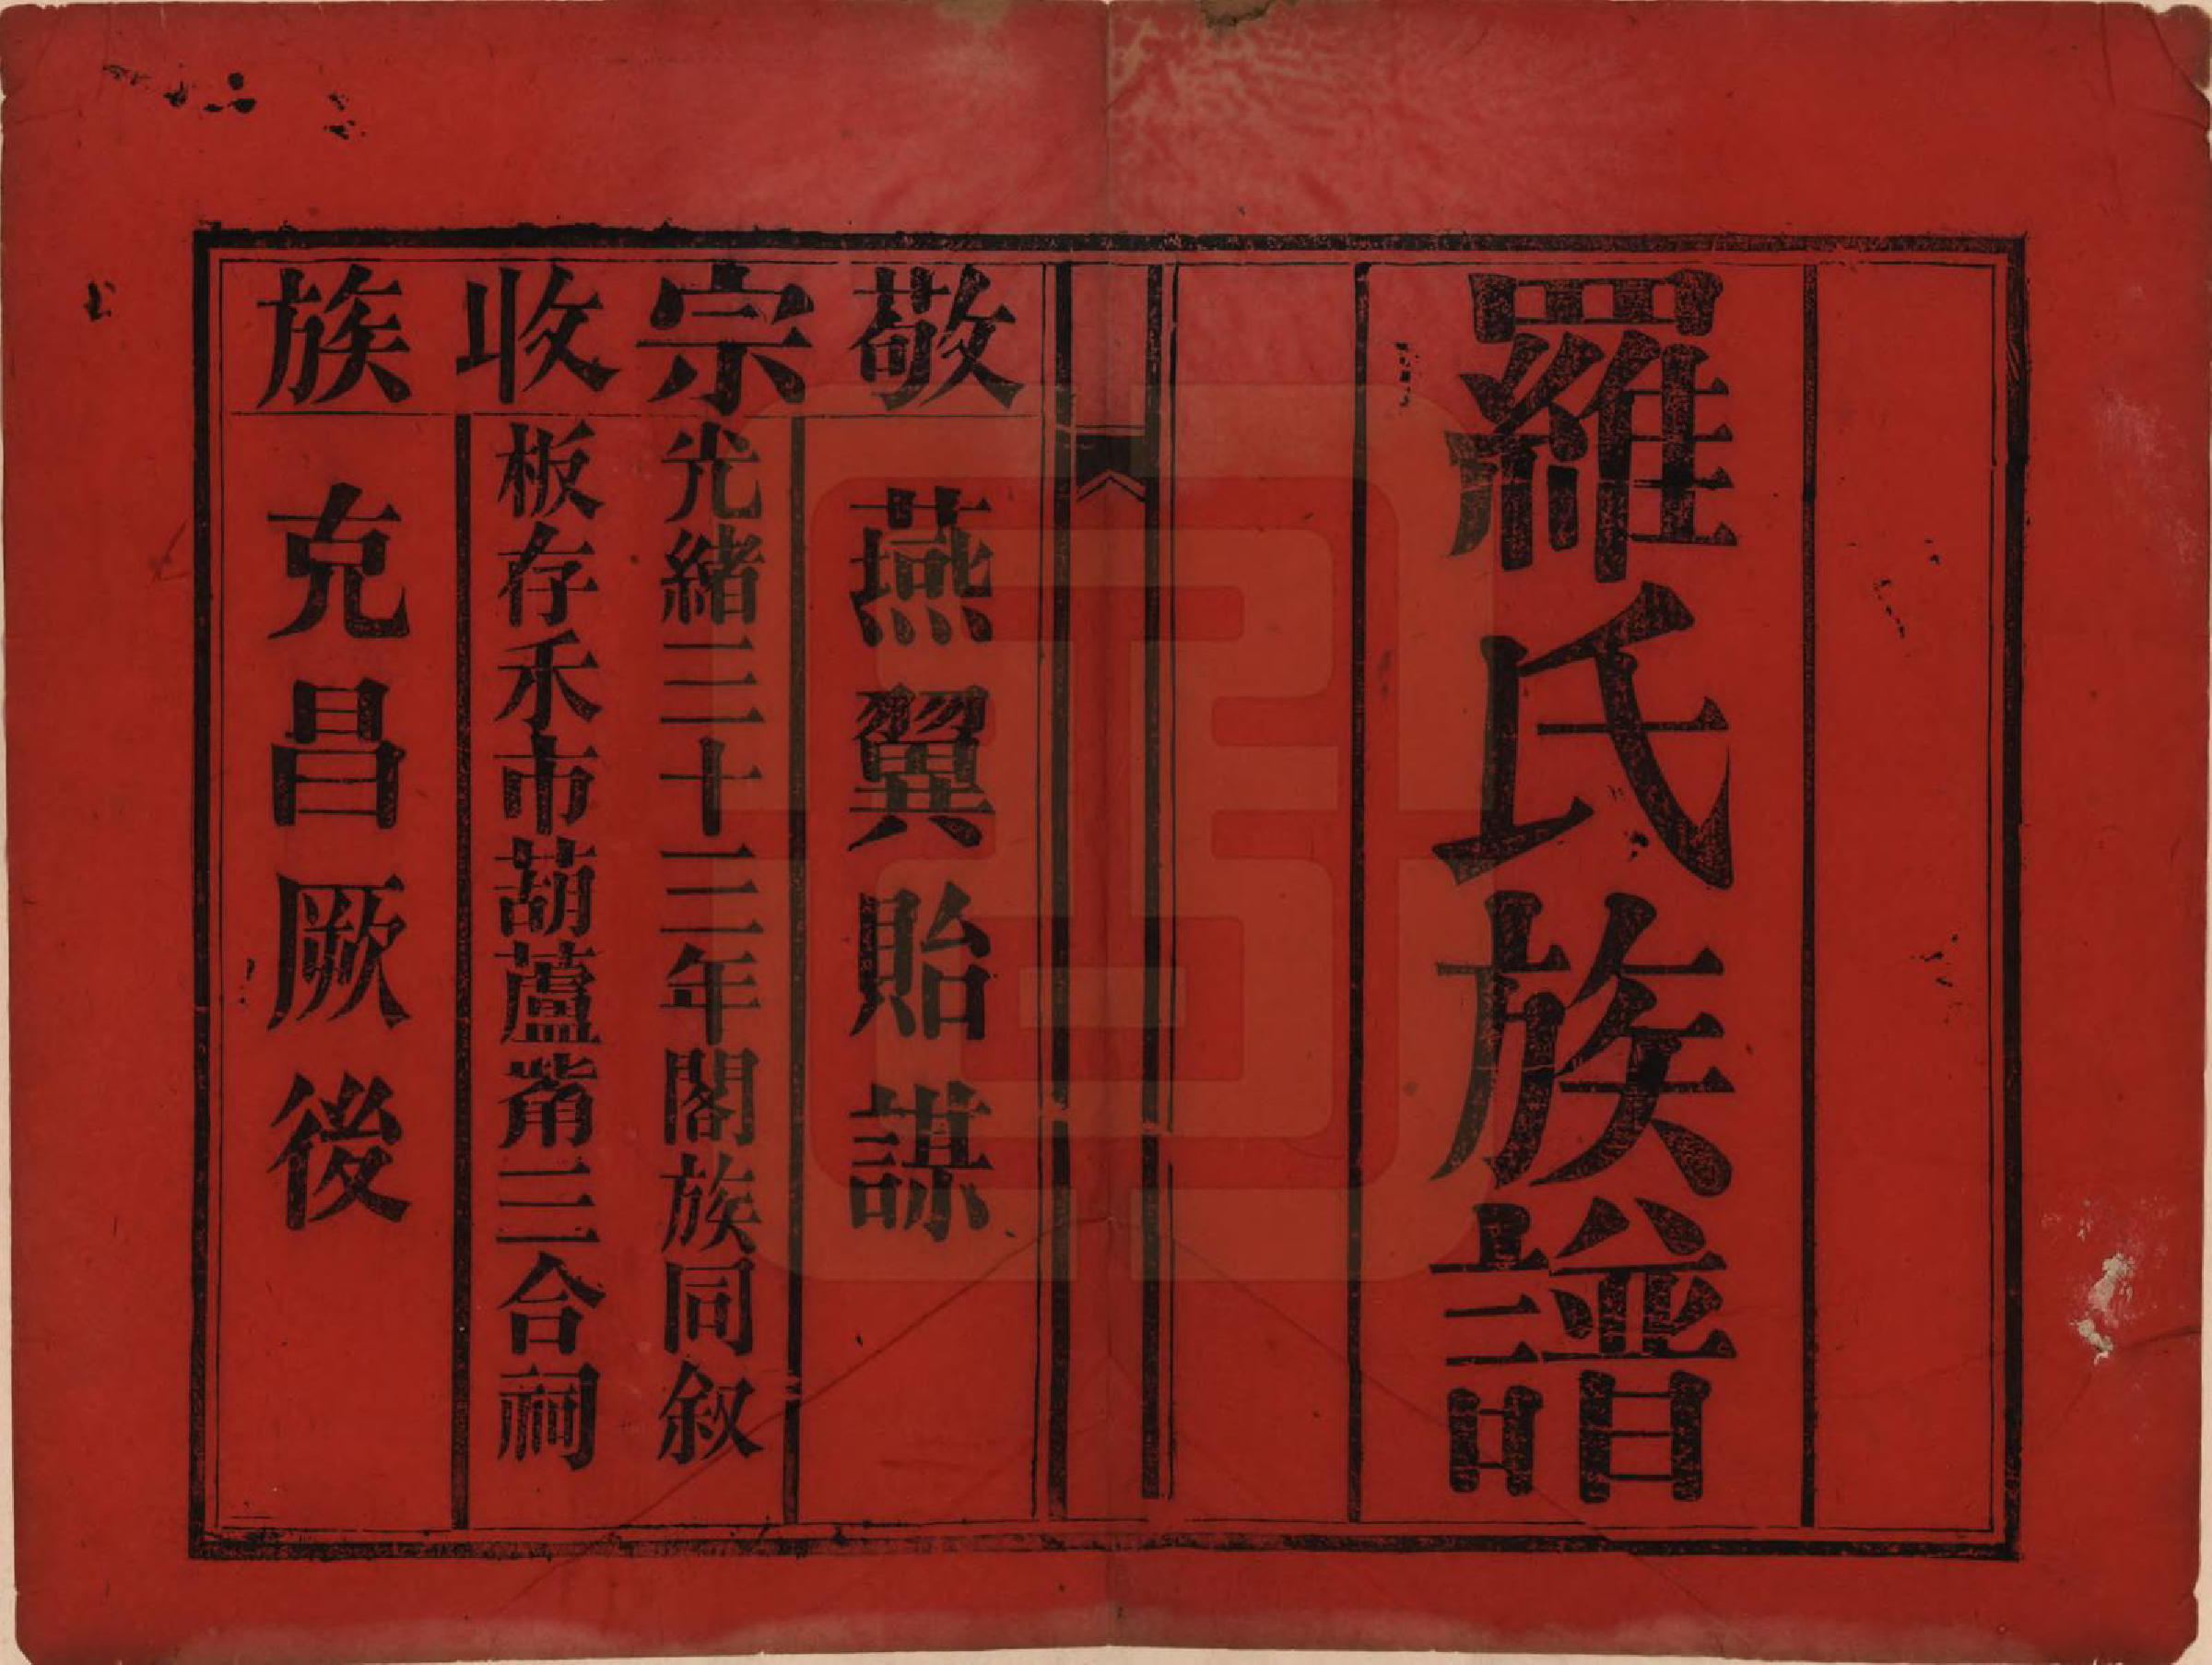 羅氏族譜
敬宗收族
燕翼貽謀
光緒三十三年閤族同叙
板存禾市葫蘆觜三合祠
克昌厥後